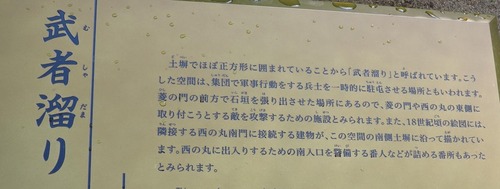 武者溜り
むしゃだま
土塀でほぼ正方形に囲まれていることから「武者溜り」と呼ばれています。こう
した空間は、集団で軍事行動をする兵士を一時的に駐屯させる場所ともいわれます。
菱の門の前方で石垣を張り出させた場所にあるので、菱の門や西の丸の東側に
取り付こうとする敵を攻撃するための施設とみられます。また、18世紀頃の絵図には、
隣接する西の丸南門に接続する建物が、この空間の南側土塀に沿って描かれてい
ます。西の丸に出入りするための南入口を警備する番人などが詰める番所もあった
とみられます。